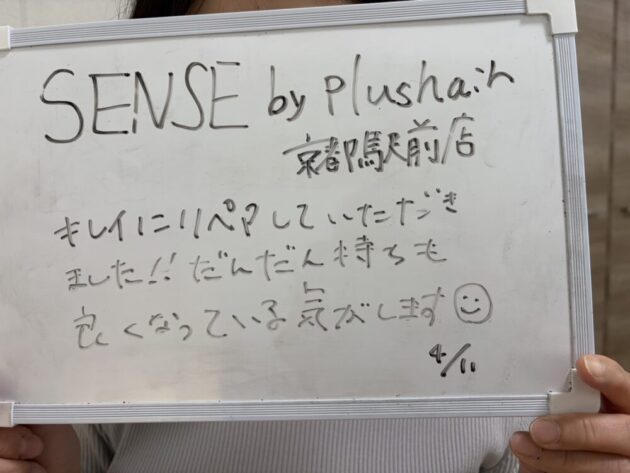 SENSE by Plushair
京都駅前店
キレイにリペアしていただき
ました!! だんだん持ちも
良くなっている気がします☺
4/11